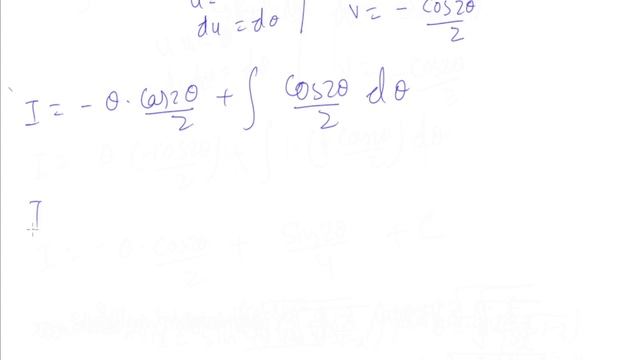 u =
du = dθ | v = - cos2θ/2
I = - θ · cos2θ/2 + ∫ cos2θ/2 dθ
I